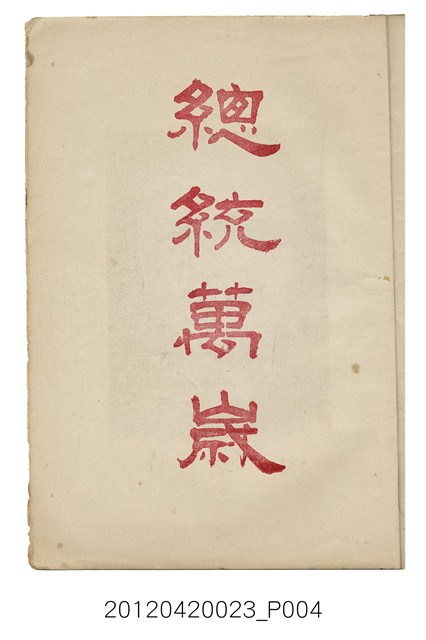 總統萬歲
20120420023_P004